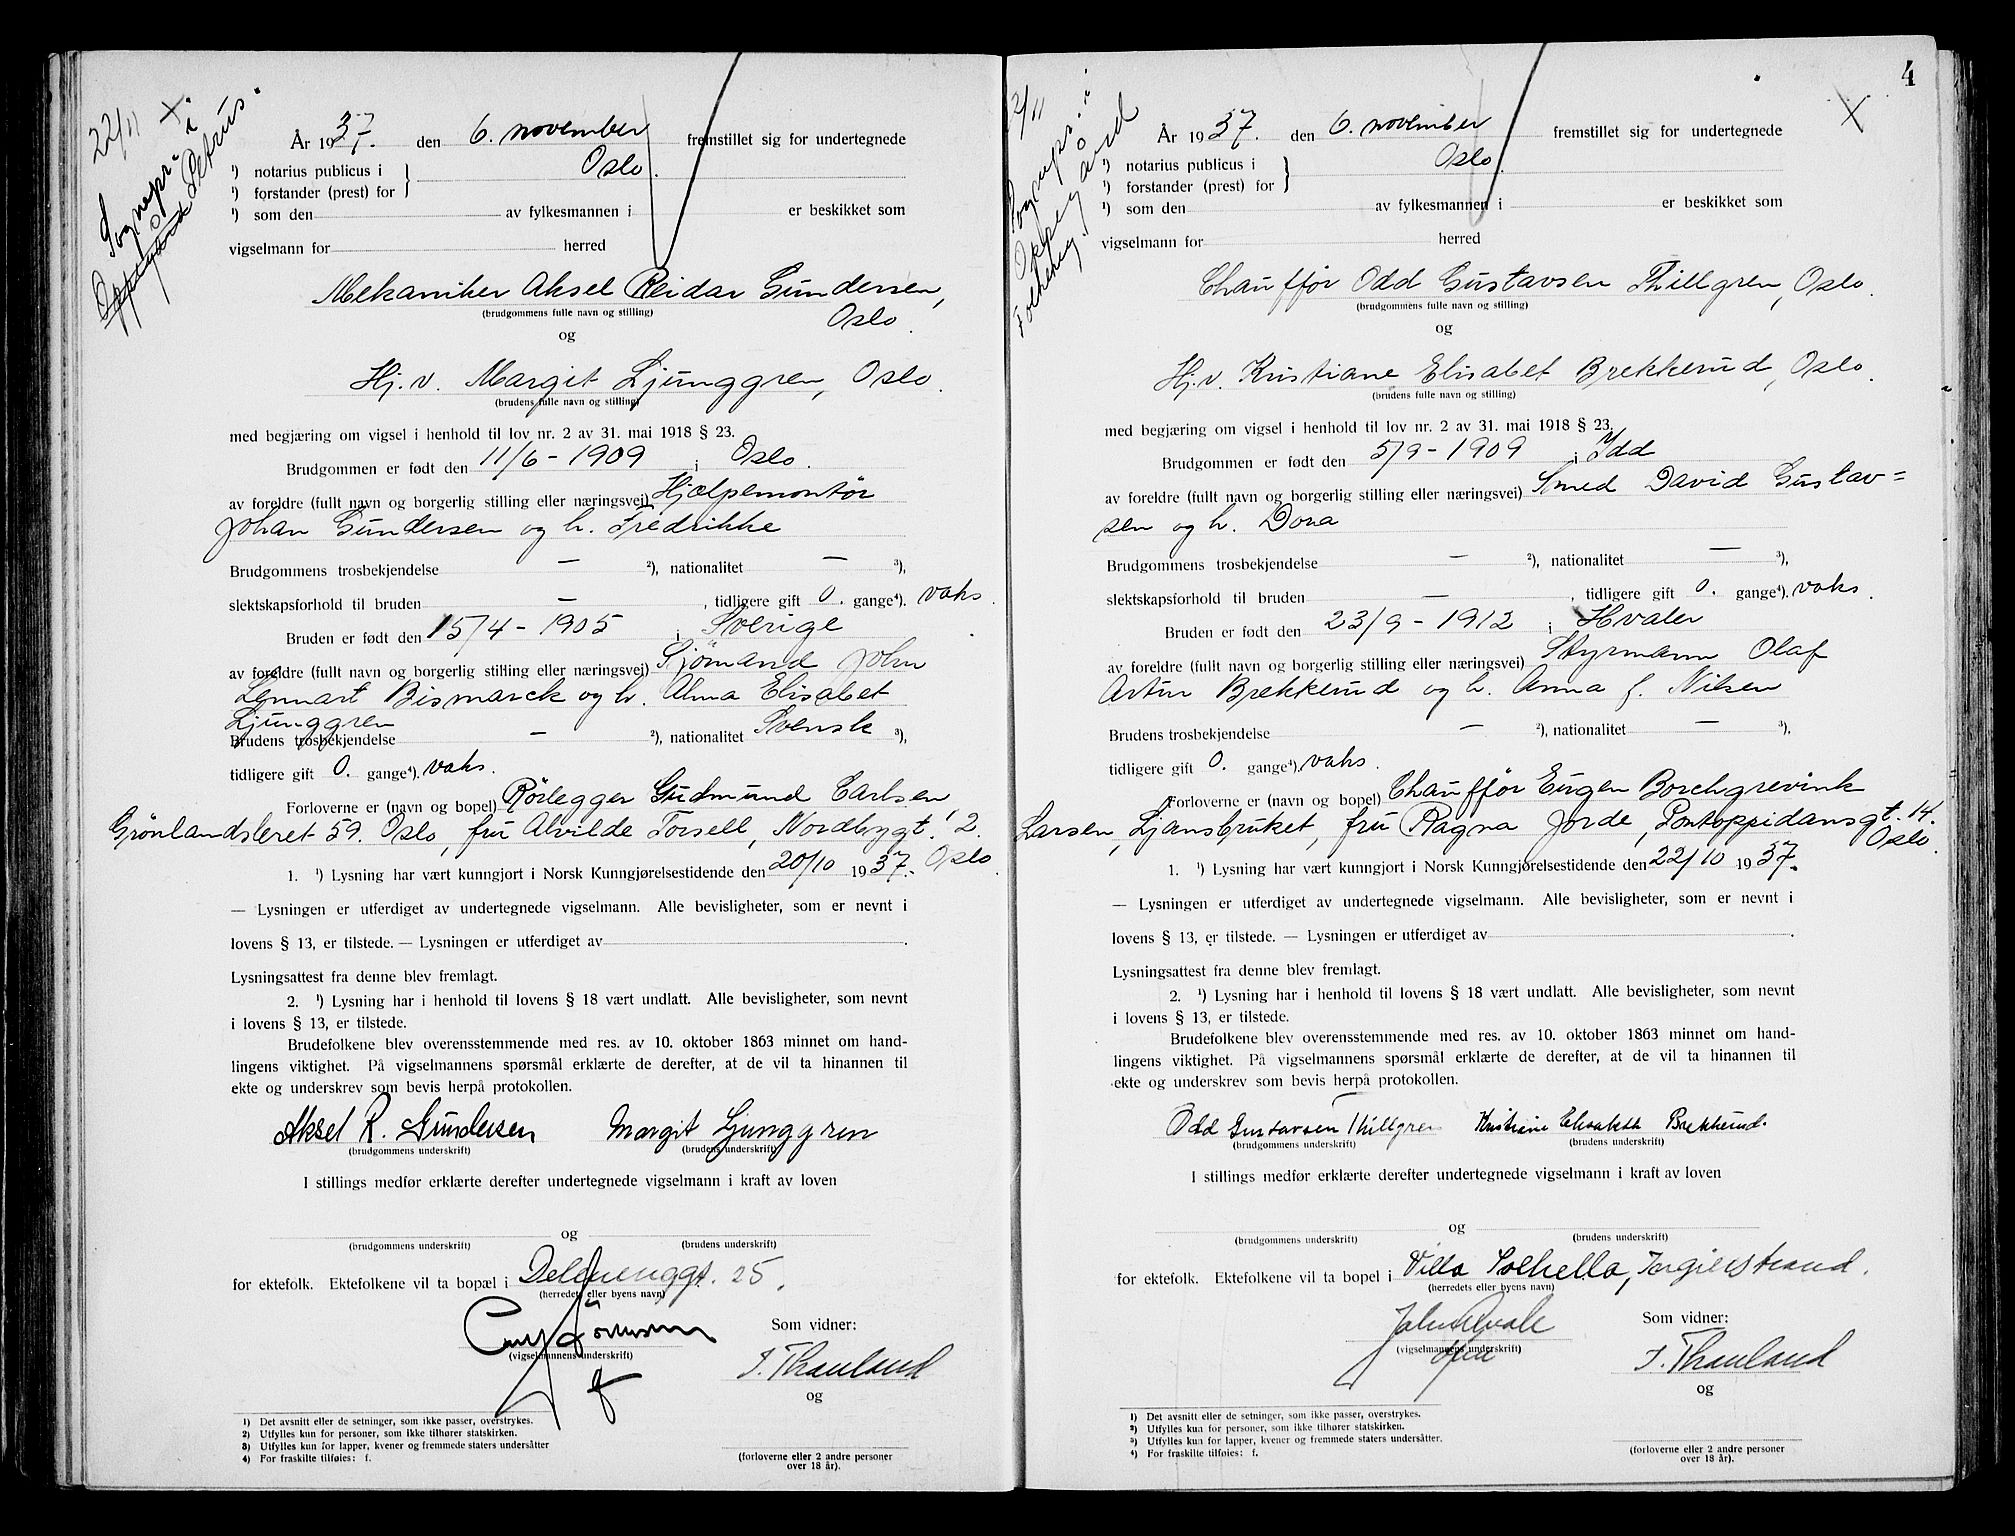 22/11 X
Sognepr. i
Petrus.
År 1937. den 6. november fremstillet sig for undertegnede
¹) notarius publicus i Oslo.
¹) forstander (prest) for
¹) som den av fylkesmannen i er beskikket som
vigselmann for herred
Mekaniker Aksel Reidar Gundersen,
(brudgommens fulle navn og stilling)
Oslo.
og
Hj.v. Margit Ljunggren, Oslo.
(brudens fulle navn og stilling)
med begjæring om vigsel i henhold til lov nr. 2 av 31. mai 1918 § 23.
Brudgommen er født den 11/6 - 1909 i Oslo.
av foreldre (fullt navn og borgerlig stilling eller næringsvei) Hjælpemontör
Johan Gundersen og h. Fredrikke
Brudgommens trosbekjendelse — ²), nationalitet — ³),
slektskapsforhold til bruden — , tidligere gift 0. gange⁴). vaks.
Bruden er født den 15/4 - 1905 i Sverige
av foreldre (fullt navn og borgerlig stilling eller næringsvei) Sjömand John
Lennart Bismarck og h. Alma Elisabet
Ljunggren
Brudens trosbekjendelse — ²), nationalitet Svensk ³),
tidligere gift 0. gange⁴). vaks.
Forloverne er (navn og bopel) Rörlegger Gudmund Carlsen,
Grönlandsleret 59. Oslo, fru Alvilde Torsell, Nordbygt. 12.
Oslo.
1. ¹) Lysning har vært kunngjort i Norsk Kunngjørelsestidende den 20/10 1937.
— Lysningen er utferdiget av undertegnede vigselmann. Alle bevisligheter, som er nevnt i
lovens § 13, er tilstede. — Lysningen er utferdiget av .
Lysningsattest fra denne blev fremlagt.
2. ¹) Lysning har i henhold til lovens § 18 vært undlatt. Alle bevisligheter, som nevnt
i lovens § 13, er tilstede.
Brudefolkene blev overensstemmende med res. av 10. oktober 1863 minnet om hand-
lingens viktighet. På vigselmannens spørsmål erklærte de derefter, at de vil ta hinannen til
ekte og underskrev som bevis herpå protokollen.
Aksel R. Gundersen Margit Ljunggren
(brudgommens underskrift) (brudens underskrift)
I stillings medfør erklærte derefter undertegnede vigselmann i kraft av loven
og
(brudgommens underskrift) (brudens underskrift)
for ektefolk. Ektefolkene vil ta bopæl i Dælenenggt. 25.
(herredets eller byens navn)
Som vidner:
(vigselmannens underskrift)
J. Thauland
og
1) Det avsnitt eller de setninger, som ikke passer, overstrykes.
2) Utfylles kun for personer, som ikke tilhører statskirken.
3) Utfylles kun for lapper, kvener og fremmede staters undersåtter
4) For fraskilte tilføies: f.
(forloverne eller 2 andre personer
over 18 år).
4
2/11 X
Sognepr. i
Oppegård
År 1937. den 6. november fremstillet sig for undertegnede
¹) notarius publicus i Oslo.
¹) forstander (prest) for
¹) som den av fylkesmannen i er beskikket som
vigselmann for herred
Chaufför Odd Gustavsen Thillgren, Oslo.
(brudgommens fulle navn og stilling)
og
Hj.v. Kristiane Elisabet Brekkerud, Oslo.
(brudens fulle navn og stilling)
med begjæring om vigsel i henhold til lov nr. 2 av 31. mai 1918 § 23.
Brudgommen er født den 5/9 - 1909 i Idd
av foreldre (fullt navn og borgerlig stilling eller næringsvei) Smed David Gustav=
sen og h. Dora
Brudgommens trosbekjendelse — ²), nationalitet — ³),
slektskapsforhold til bruden — , tidligere gift 0. gange⁴). vaks.
Bruden er født den 23/9 - 1912 i Hvaler
av foreldre (fullt navn og borgerlig stilling eller næringsvei) Styrmann Olaf
Artur Brekkerud og h. Anna f. Nilsen
Brudens trosbekjendelse — ²), nationalitet — ³),
tidligere gift 0. gange⁴). vaks.
Forloverne er (navn og bopel) Chaufför Eugen Borchgrevink
Larsen, Ljansbruket, fru Ragna Jorde, Pontoppidansgt. 14.
Oslo.
1. ¹) Lysning har vært kunngjort i Norsk Kunngjørelsestidende den 22/10 1937.
— Lysningen er utferdiget av undertegnede vigselmann. Alle bevisligheter, som er nevnt i
lovens § 13, er tilstede. — Lysningen er utferdiget av .
Lysningsattest fra denne blev fremlagt.
2. ¹) Lysning har i henhold til lovens § 18 vært undlatt. Alle bevisligheter, som nevnt
i lovens § 13, er tilstede.
Brudefolkene blev overensstemmende med res. av 10. oktober 1863 minnet om hand-
lingens viktighet. På vigselmannens spørsmål erklærte de derefter, at de vil ta hinannen til
ekte og underskrev som bevis herpå protokollen.
Odd Gustavsen Thillgren Kristiane Elisabeth Brekkerud.
(brudgommens underskrift) (brudens underskrift)
I stillings medfør erklærte derefter undertegnede vigselmann i kraft av loven
og
(brudgommens underskrift) (brudens underskrift)
for ektefolk. Ektefolkene vil ta bopel i Villa Solhella, Ingierstrand.
(herredets eller byens navn)
Som vidner:
(vigselmannens underskrift)
J. Thauland
og
1) Det avsnitt eller de setninger, som ikke passer, overstrykes.
2) Utfylles kun for personer, som ikke tilhører statskirken.
3) Utfylles kun for lapper, kvener og fremmede staters undersåtter.
4) For fraskilte tilføies: f.
(forloverne eller 2 andre personer
over 18 år).